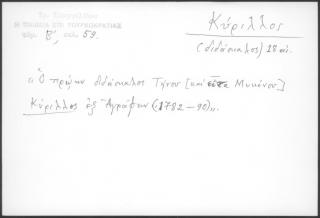 Τρ. Εὐαγγελίδου
Η ΠΑΙΔΕΙΑ ΕΠΙ ΤΟΥΡΚΟΚΡΑΤΙΑΣ
τόμ. Β', σελ. 59.
Κύριλλος
(διδάσκαλος) 18 αι.
"Ὁ πρώην διδάσκαλος Τήνου [καὶ εἶτα Μυκόνου]
Κύριλλος ἐξ Ἀγράφων (1782-90)".